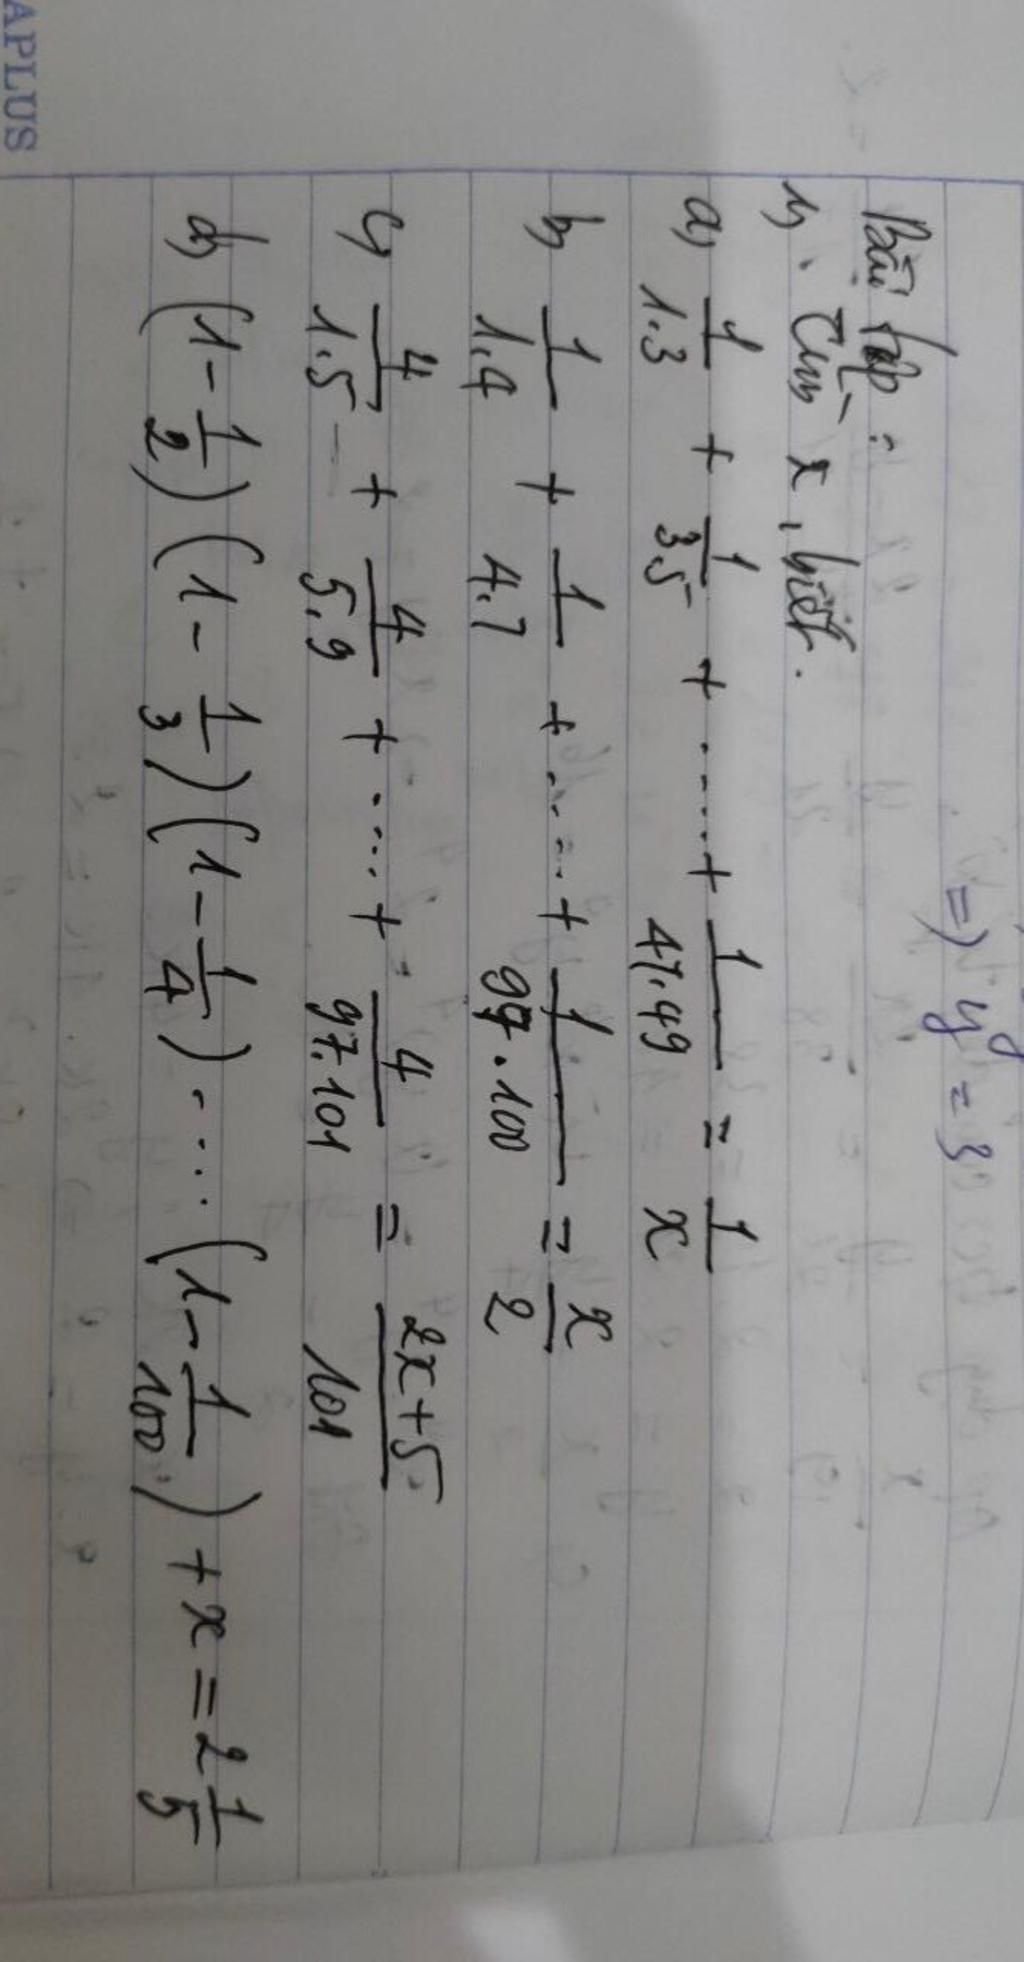 =) y = 3
Bài tập :
1, Tìm x, biết.
a, 1/1.3 + 1/3.5 + ..... + 1/47.49 = 1/x
b, 1/1.4 + 1/4.7 + ..... + 1/97.100 = x/2
c, 4/1.5 + 4/5.9 + .... + 4/97.101 = 2x+5/101
d, (1 - 1/2) (1 - 1/3) (1 - 1/4) .... (1 - 1/100) + x = 2 1/5
APLUS